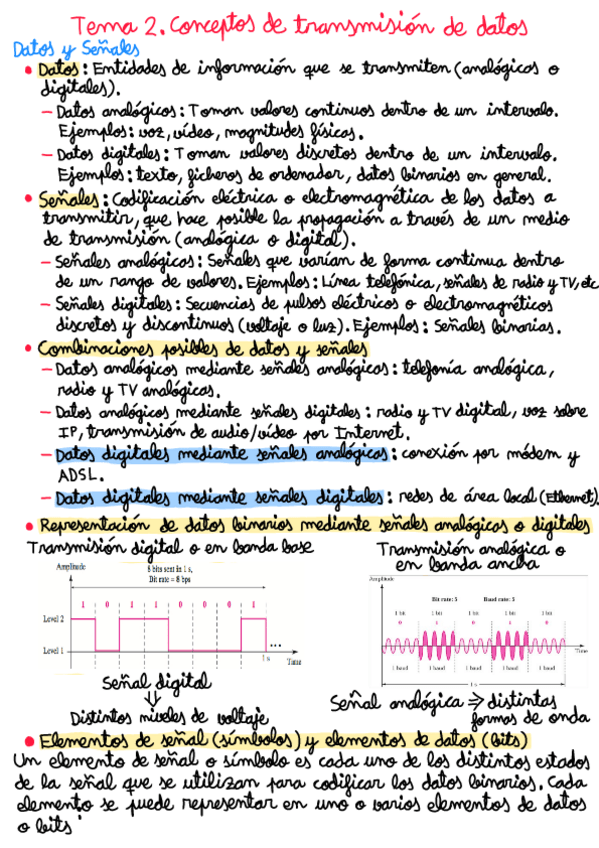 Tema 2. Conceptos de transmisión de datos
Datos y Señales
• Datos: Entidades de información que se transmiten (analógicos o
digitales).
– Datos analógicos: Toman valores continuos dentro de un intervalo.
Ejemplos: voz, vídeo, magnitudes físicas.
– Datos digitales: Toman valores discretos dentro de un intervalo.
Ejemplos: texto, ficheros de ordenador, datos binarios en general.
• Señales: Codificación eléctrica o electromagnética de los datos a
transmitir, que hace posible la propagación a través de un medio
de transmisión (analógica o digital).
– Señales analógicas: Señales que varían de forma continua dentro
de un rango de valores. Ejemplos: Línea telefónica, señales de radio y TV, etc
– Señales digitales: Secuencias de pulsos eléctricos o electromagnéticos
discretos y discontinuos (voltaje o luz). Ejemplos: Señales binarias.
• Combinaciones posibles de datos y señales
– Datos analógicos mediante señales analógicas: telefonía analógica,
radio y TV analógicas.
– Datos analógicos mediante señales digitales: radio y TV digital, voz sobre
IP, transmisión de audio/vídeo por Internet.
– Datos digitales mediante señales analógicas: conexión por módem y
ADSL.
– Datos digitales mediante señales digitales: redes de área local (Ethernet).
• Representación de datos binarios mediante señales analógicas o digitales
Transmisión digital o en banda base
Amplitude
8 bits sent in 1 s,
Bit rate = 8 bps
1 0 1 1 0 0 0 1
Level 2
Level 1
...
1 s
Time
Señal digital
⇓
Distintos niveles de voltaje
Transmisión analógica o
en banda ancha
Amplitude
Bit rate: 5 Baud rate: 5
1 bit 1 bit 1 bit 1 bit 1 bit
0 1 0 1 0
Time
1 baud 1 baud 1 baud 1 baud 1 baud
1 s
Señal analógica ⇒ distintas
formas de onda
• Elementos de señal (símbolos) y elementos de datos (bits)
Un elemento de señal o símbolo es cada uno de los distintos estados
de la señal que se utilizan para codificar los datos binarios. Cada
elemento se puede representar en uno o varios elementos de datos
o bits.